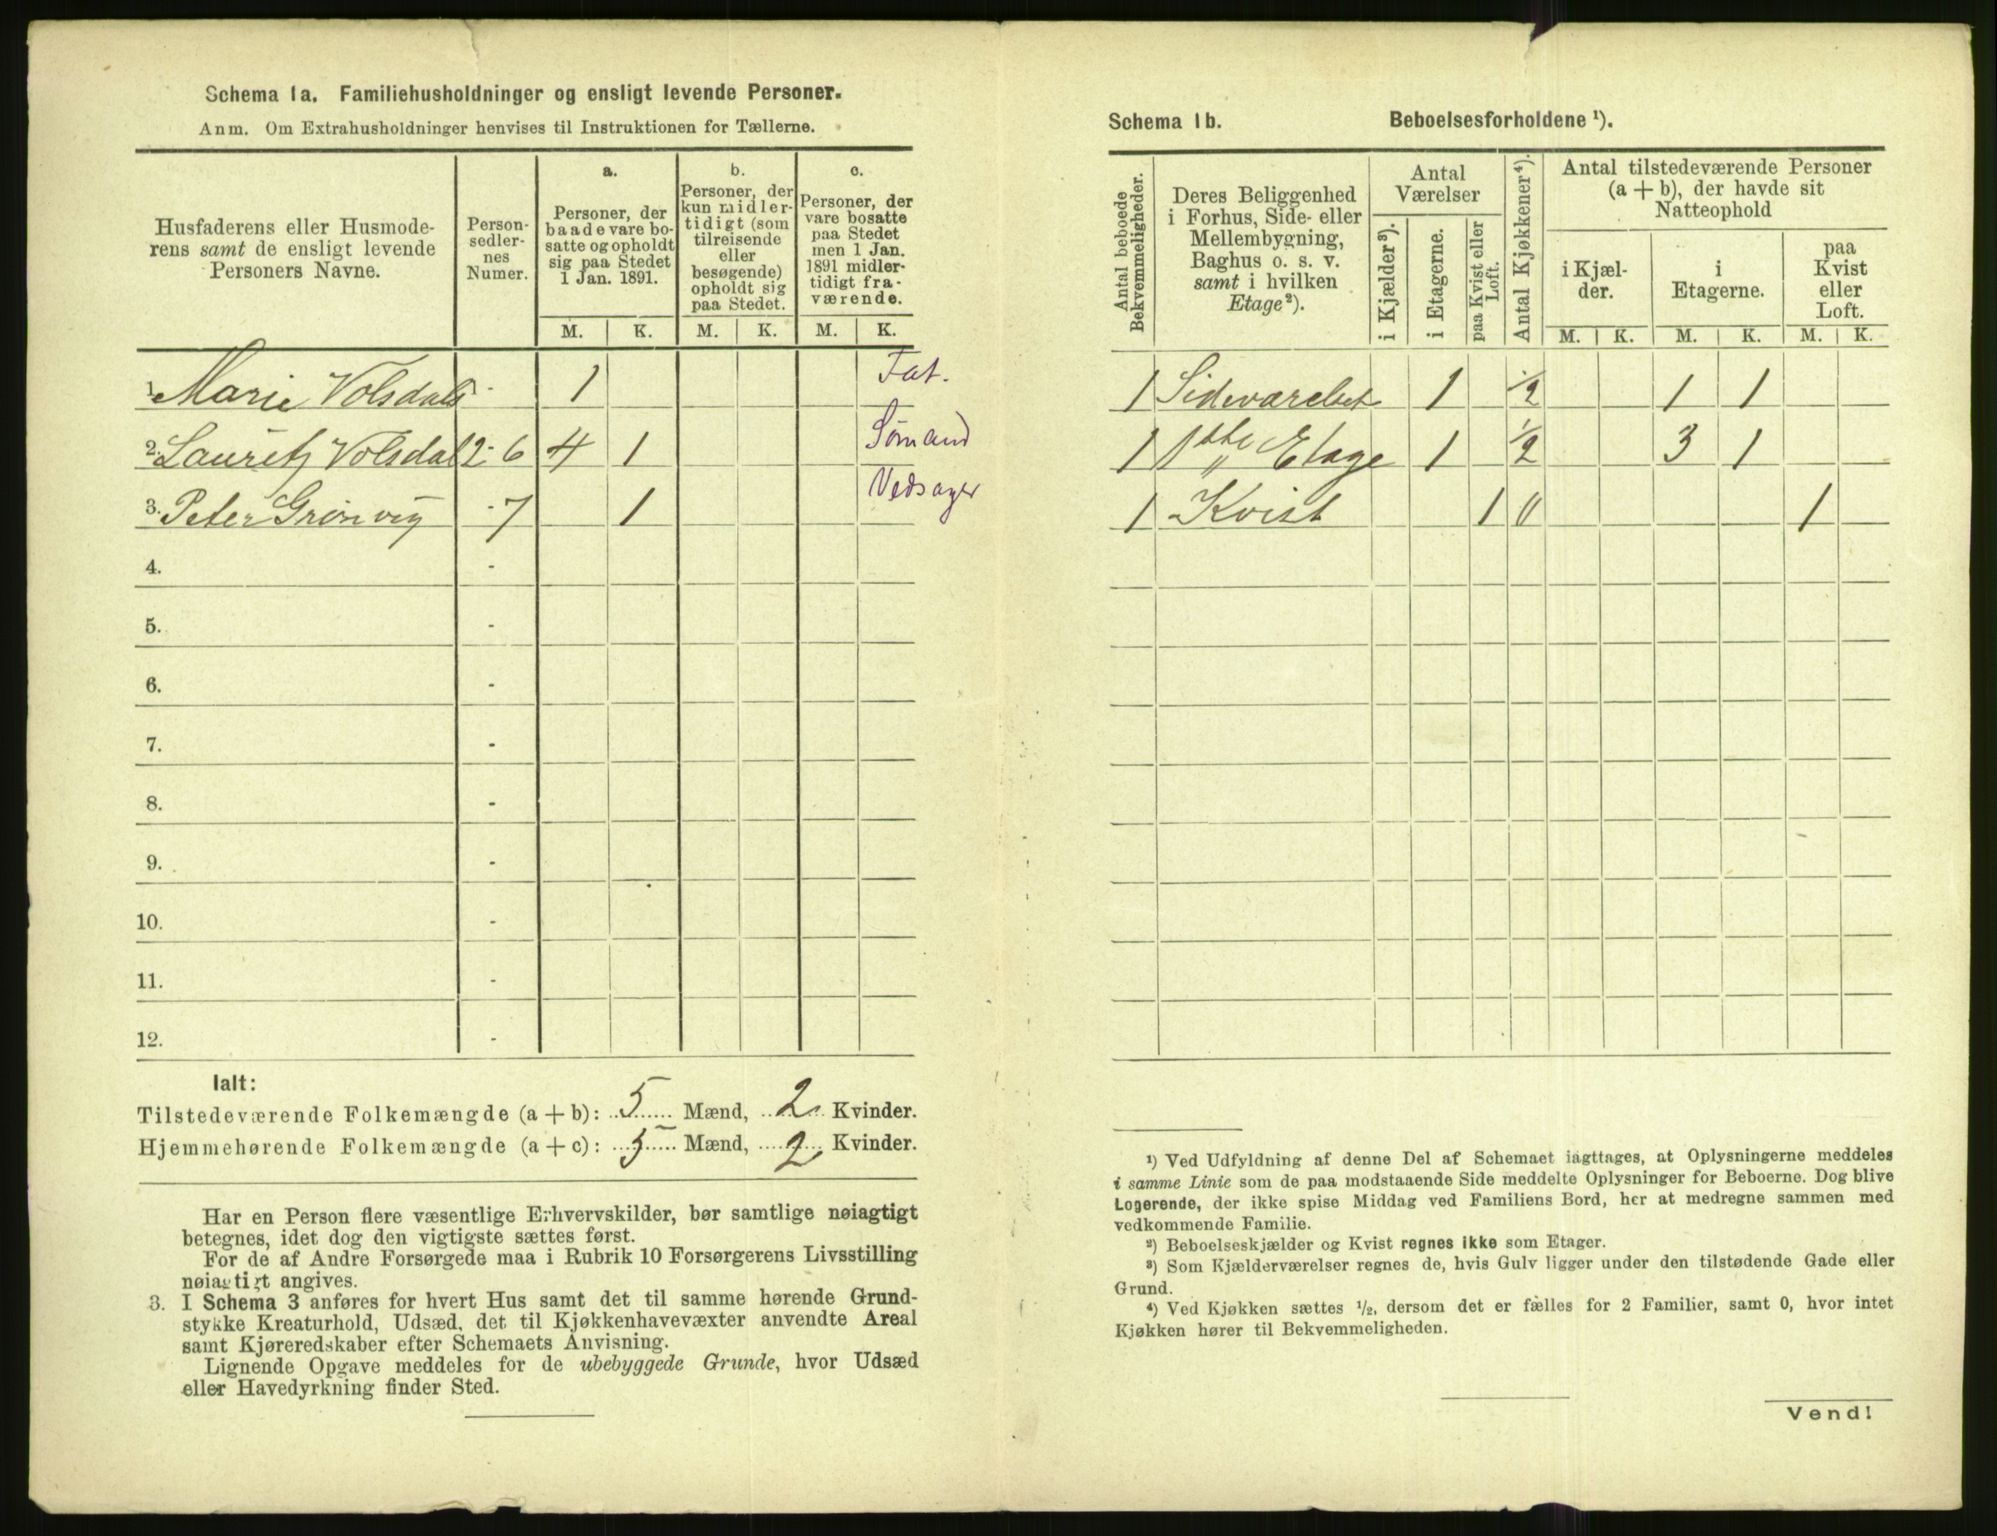 Schema 1a. Familiehusholdninger og ensligt levende Personer.
Anm. Om Extrahusholdninger henvises til Instruktionen for Tællerne.
Husfaderens eller Husmode-
rens samt de ensligt levende
Personers Navne.
Person-
sedler-
nes
Numer.
a.
Personer, der
baade vare bo-
satte og opholdt
sig paa Stedet
1 Jan. 1891.
b.
Personer, der
kun midler-
tidigt (som
tilreisende
eller
besøgende)
opholdt sig
paa Stedet.
c.
Personer, der
vare bosatte
paa Stedet
men 1 Jan.
1891 midler-
tidigt fra-
værende.
M. K. M. K. M. K.
1. Marie Volsdal - 1 Fat.
2. Lauritz Volsdal 2-6 4 1 Sømand
3. Peter Grønvig -7 1 Vedsager
4. -
5. -
6. -
7. -
8. -
9. -
10. -
11. -
12. -
Ialt:
Tilstedeværende Folkemængde (a + b): 5 Mænd, 2 Kvinder.
Hjemmehørende Folkemængde (a + c): 5 Mænd, 2 Kvinder.
Har en Person flere væsentlige Erhvervskilder, bør samtlige nøiagtigt
betegnes, idet dog den vigtigste sættes først.
For de af Andre Forsørgede maa i Rubrik 10 Forsørgerens Livsstilling
nøiagtigt angives.
3. I Schema 3 anføres for hvert Hus samt det til samme hørende Grund-
stykke Kreaturhold, Udsæd, det til Kjøkkenhavevæxter anvendte Areal
samt Kjøreredskaber efter Schemaets Anvisning.
Lignende Opgave meddeles for de ubebyggede Grunde, hvor Udsæd
eller Havedyrkning finder Sted.
Schema 1b. Beboelsesforholdene 1).
Antal beboede
Bekvemmeligheder.
Deres Beliggenhed
i Forhus, Side- eller
Mellembygning,
Baghus o. s. v.
samt i hvilken
Etage 2).
Antal
Værelser
i Kjælder 3).
i Etagerne.
paa Kvist eller
Loft.
Antal Kjøkkener 4).
Antal tilstedeværende Personer
(a + b), der havde sit
Natteophold
i Kjæl-
der.
i
Etagerne.
paa
Kvist
eller
Loft.
M. K. M. K. M. K.
1 Sideværelset 1 1/2 1 1
1 1ste Etage 1 1/2 3 1
1 Kvist 1 0 1
1) Ved Udfyldning af denne Del af Schemaet iagttages, at Oplysningerne meddeles
i samme Linie som de paa modstaaende Side meddelte Oplysninger for Beboerne. Dog blive
Logerende, der ikke spise Middag ved Familiens Bord, her at medregne sammen med
vedkommende Familie.
2) Beboelseskjælder og Kvist regnes ikke som Etager.
3) Som Kjælderværelser regnes de, hvis Gulv ligger under den tilstødende Gade eller
Grund.
4) Ved Kjøkken sættes 1/2, dersom det er fælles for 2 Familier, samt 0, hvor intet
Kjøkken hører til Bekvemmeligheden.
Vend!